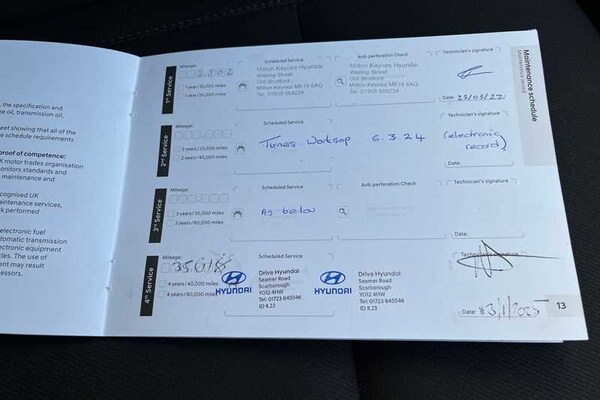 , the specification and
e oil, transmission oil,
eet showing that all of the
e schedule requirements
proof of competence:
K motor trades organisation
monitors standards and
maintenance and
cognised UK
maintenance services,
rk performed
electronic fuel
tomatic transmission
ctronic equipment
icles. The use of
ent may result
essors.
Maintenance schedule
1st Service
Mileage:
1 year/10,000 miles
Scheduled Service
Milton Keynes Hyundai
Watling Street
Old Stratford
Milton Keynes MK19 6AQ
Anti. perforation Check
Milton Keynes Hyundai
Watling Street
Old Stratford
Milton Keynes MK19 6AQ
Technician's signature
Date: 25/05/22
2nd Service
2 years/20,000 miles
Scheduled Service
Anti. perforation Check
6.3.24
(electronic
record)
Date:
3rd Service
3 years/30,000 miles
Scheduled Service
As below
Anti. perforation Check
Technician's signature
Date:
4th Service
Mileage:
35618
4 years/40,000 miles
4 years/80,000 miles
Scheduled Service
HYUNDAI
Drive Hyundai
Seamer Road
Scarborough
YO12 4HW
Tel: 01723 645546
ID 8.23
HYUNDAI
Drive Hyundai
Seamer Road
Scarborough
YO12 4HW
Tel: 01723 645546
ID 8.23
Technician's signature
13